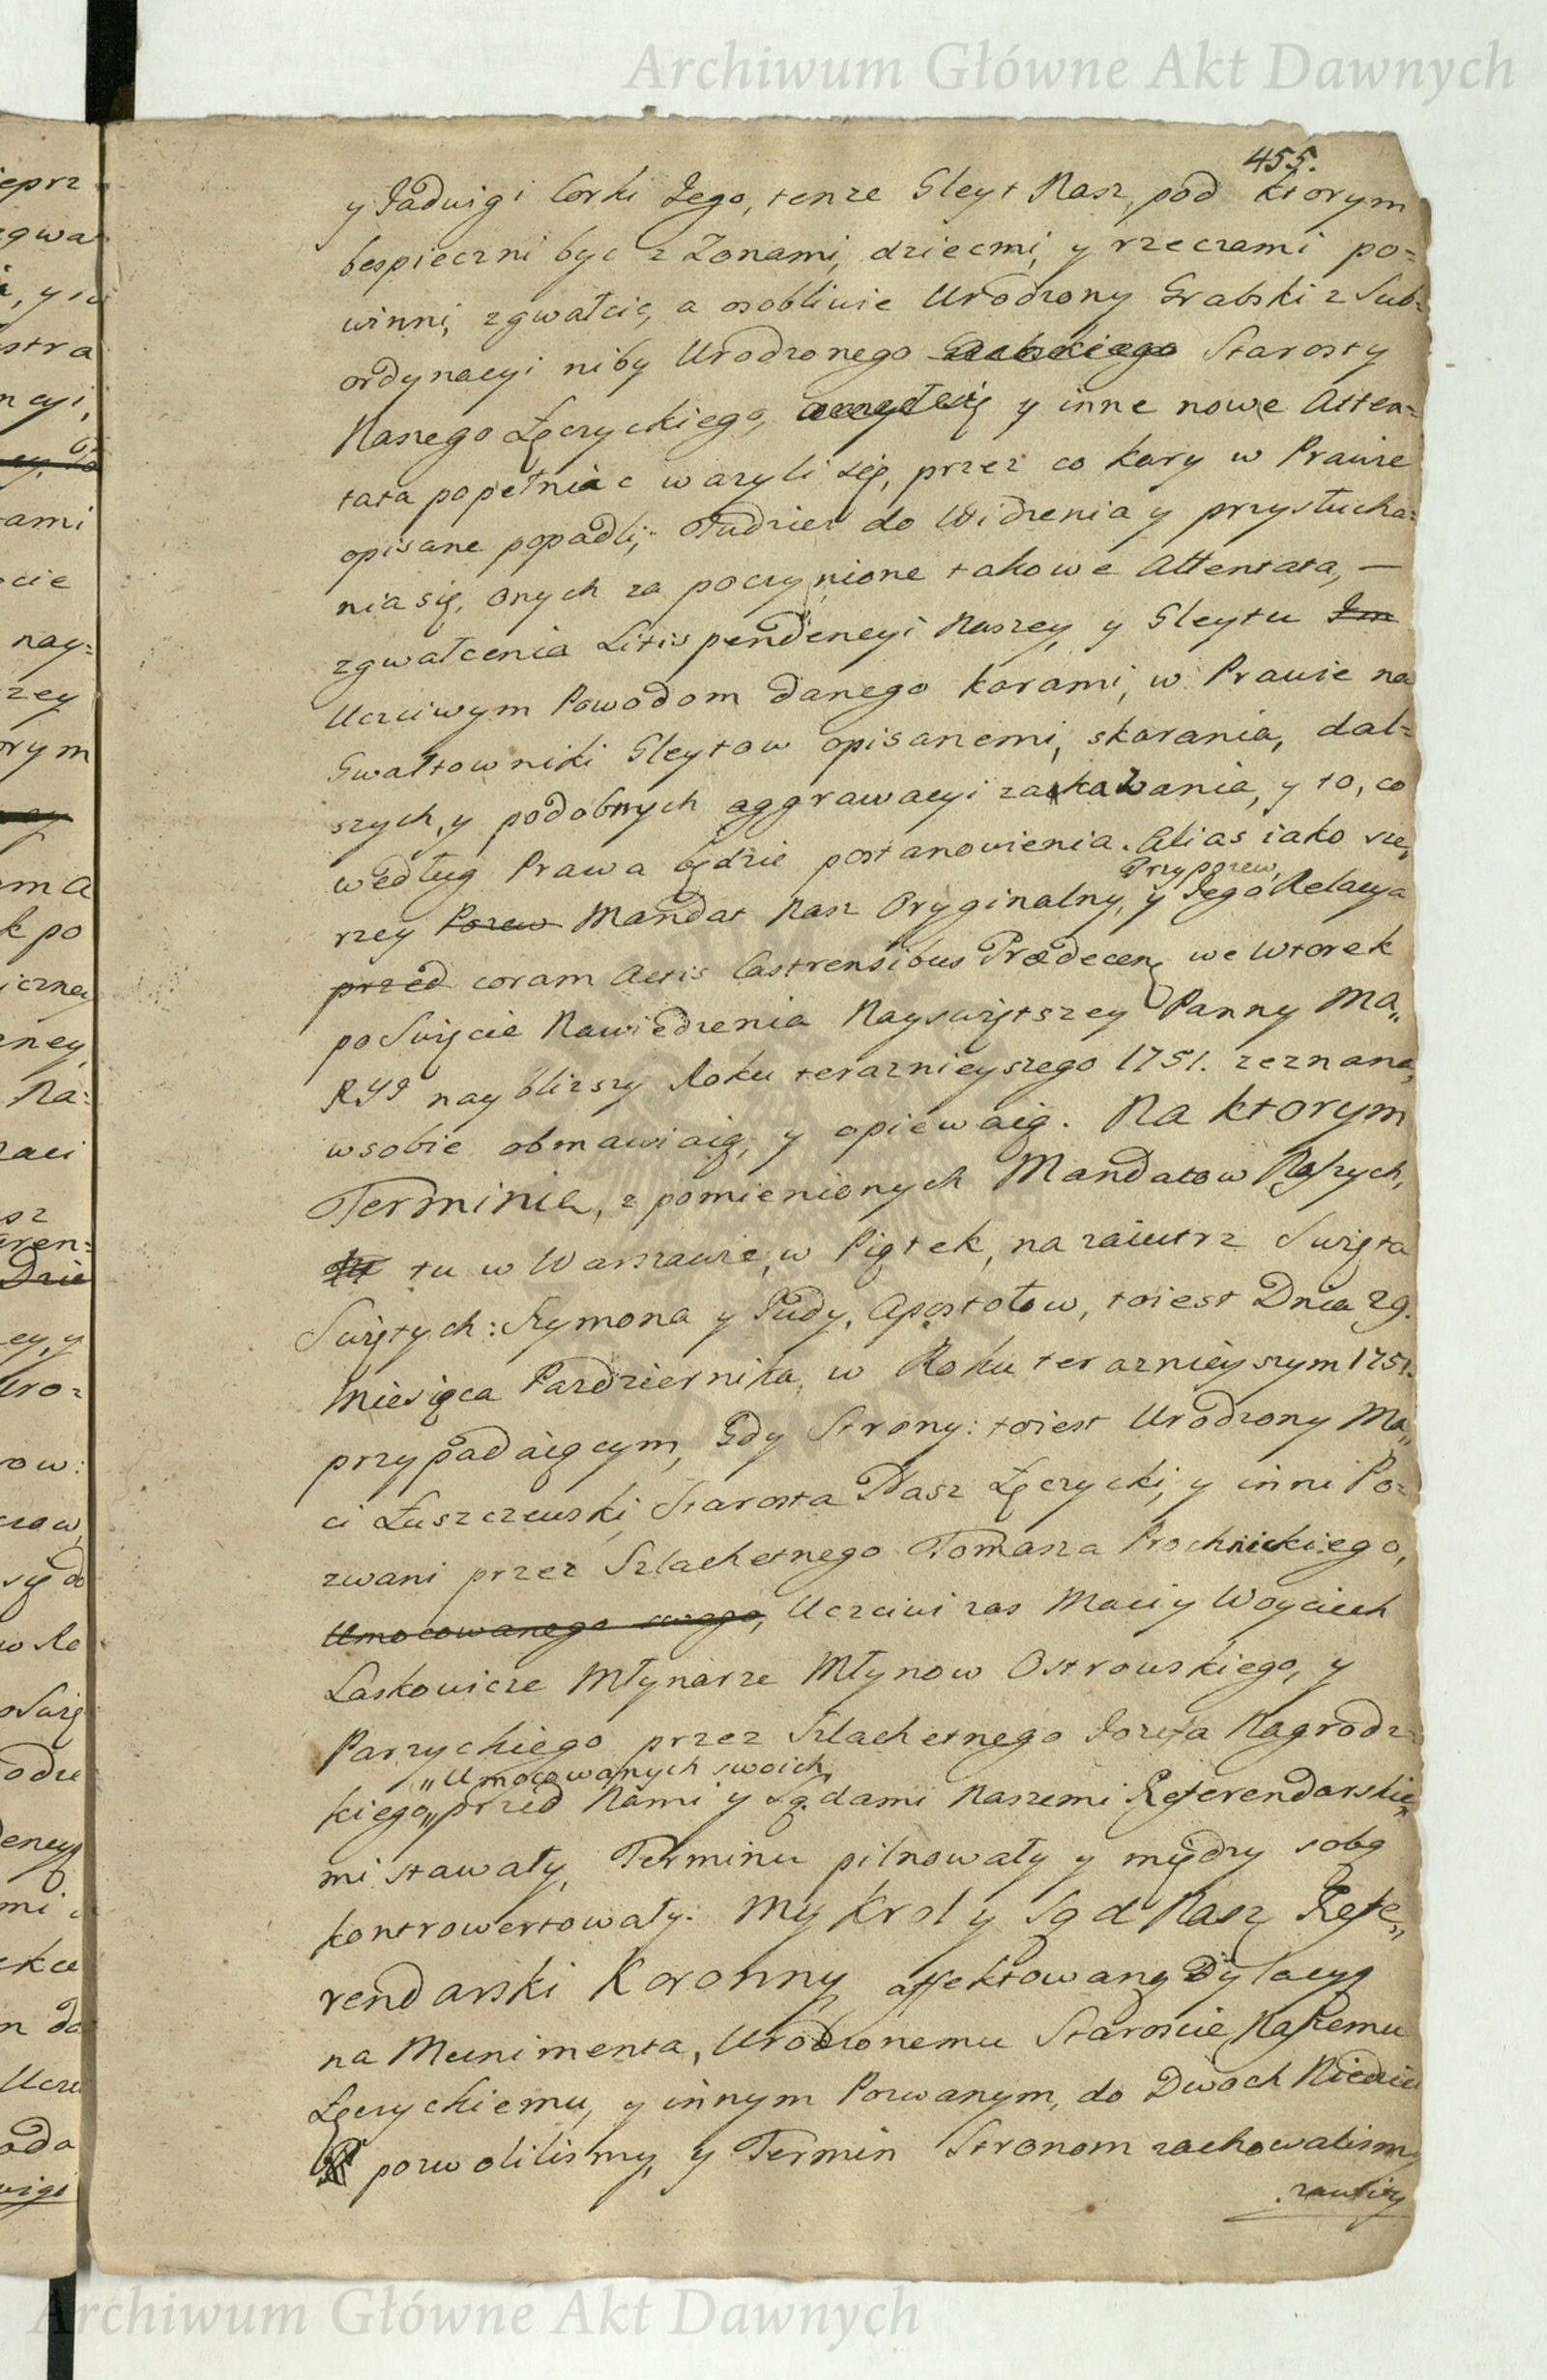 Archiwum Główne Akt Dawnych
455.
y Jadwigi Corki Jego, tenze Gleyt Nasz, pod ktorym
bespieczni byc z Zonami, dziecmi, y rzeczami po=
winni, zgwałcic, a osobliwie Urodzony Grabski z Sub=
ordynacyi niby Urodzonego Starosty
Naszego Łęczyckiego, y inne nowe Atten=
tata popełniac wazyli się, przez co kary w Prawie
opisane popadli; Tudziez do Widzenia y przysłucha=
nia się, onych za poczynione takowe Attentata, —
zgwałcenia Litis pendencyi Naszey, y Gleytu Im
Uczciwym Powodom danego karami, w Prawie na
Gwałtowniki Gleytow opisanemi, skarania, dal=
szych, y podobnych aggrawacyi zakazania, y to, co
według Prawa będzie postanowienia. Alias iako sze„
Przypozew,
rzey Pozew Mandat Nasz Oryginalny, y Jego Relacya
przed coram Actis Castrensibus Prædecen. we Wtorek
po Swięcie Nawiedzenia Nayswiętszey Panny Ma„
Ryi nayblizszy Roku teraznieyszego 1751. zeznana,
w sobie obmawiaią, y opiewaią. Na ktorym
Terminie, z pomienionych Mandatow Naszych,
tu w Warszawie, w Piątek, na zaiutrz Swięta
Swiętych: Szymona y Judy, Apostołow, toiest Dnia 29.
Miesiąca Pazdziernika, w Roku teraznieyszym 1751.
przypadaiącym, Gdy Strony: toiest Urodzony Ma„
ci Łuszczewski, Starosta Nasz Łęczycki, y inni Po=
zwani przez Szlachetnego Tomasza Prochnickiego,
Umocowanego swego, Uczciwi zas Maciy Woyciech
Laskowicze Młynarze Młynow Ostrowskiego, y
Parzyckiego przez Szlachetnego Jozefa Nagrodz=
„Umocowanych swoich
kiego„ przed Nami y Sądami Naszemi Referendarskie„
mi stawały, Terminu pilnowały y między sobą
kontrowertowały. My Krol y Sąd Nasz Refe„
rendarski Koronny affektowaną Dylacyą
na Munimenta, Urodzonemu Staroscie Naszemu
Łęczyckiemu, y innym Pozwanym, do Dwoch Niedziel
pozwolilismy, y Termin Stronom zachowalismy
Archiwum Główne Akt Dawnych